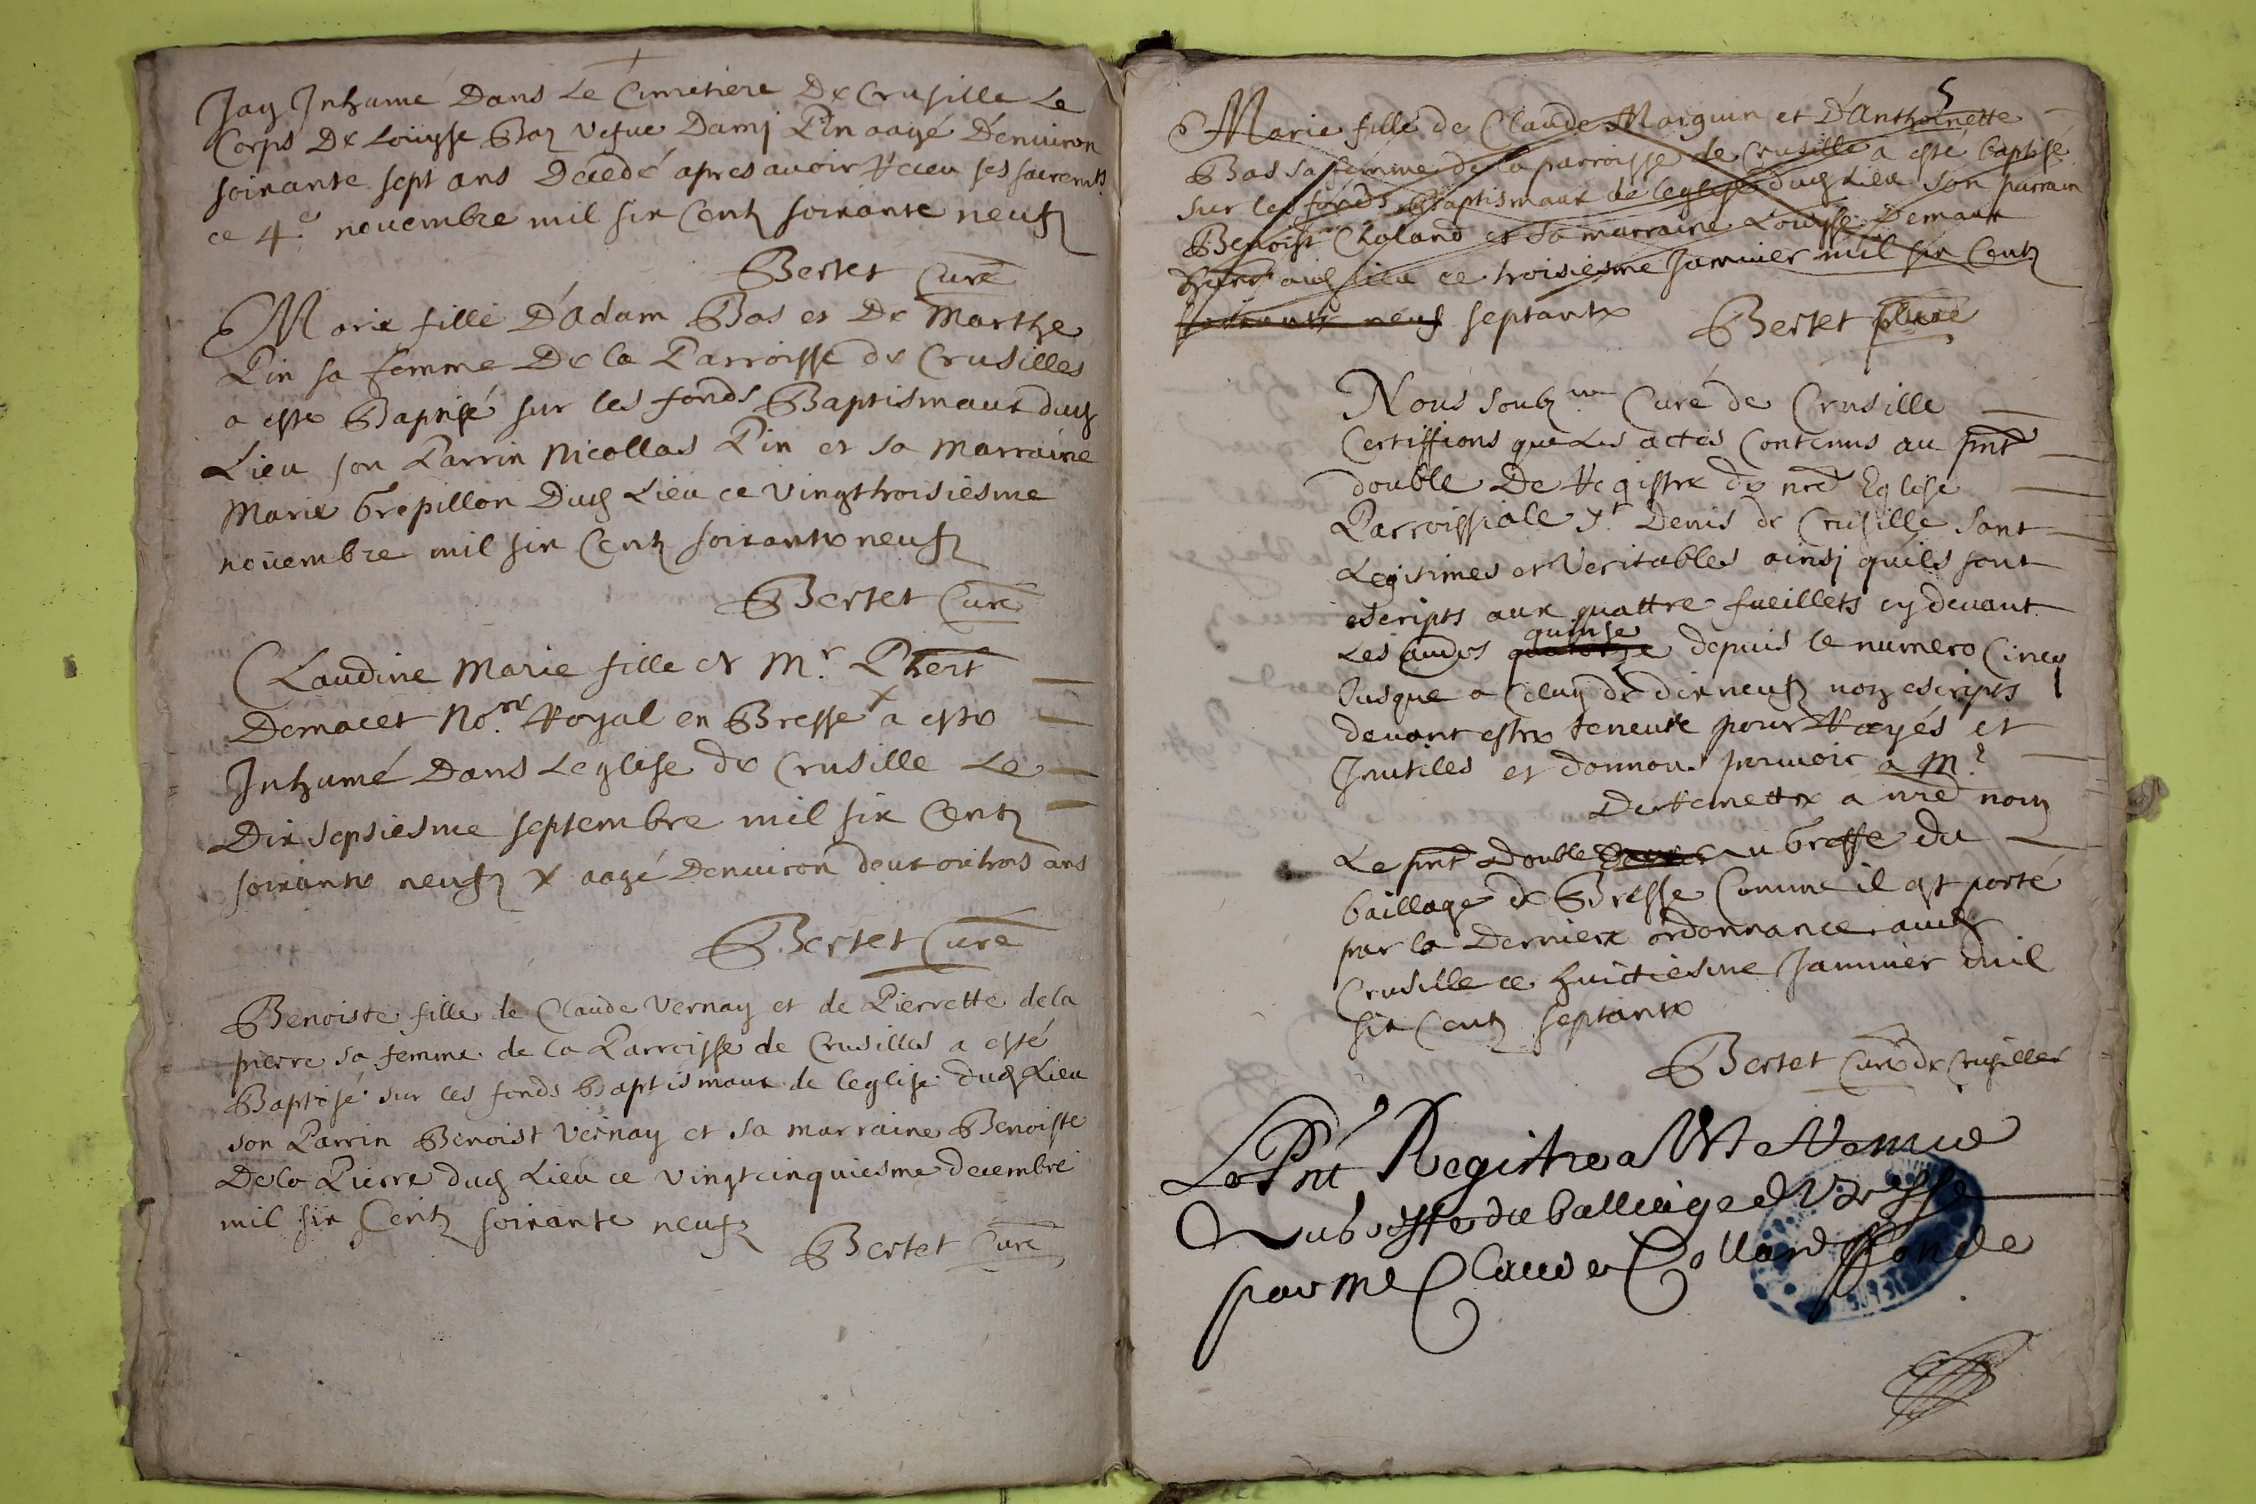 Jay Inhumé Dans Le Cimetiere De Crusille Le
Corps De Louysse Bas vefue Damj Pin aagé Denuiron
soixante sept ans Decedé apres auoir Receu ses sacremts
ce 4e nouembre mil six Centz soixante neufz
Bertet Curé
Marie fille D'Adam Bas et De Marthe
Pin sa femme De la Parroisse de Crusilles
a este Baptisé sur les fonds Baptismaux dudz
Lieu son Parrin Nicollas Pin et sa Marraine
Marie Grepillon Dudz Lieu ce vingthroisiesme
nouembre mil six Centz soixante neufz
Bertet Curé
Claudine Marie fille de Mr. Phert
Demacet Nore Royal en Bresse x a este
Inhumé Dans Leglise de Crusille Le
Dix septiesme septembre mil six Centz
soixante neufz x aagé Denuiron deux ou trois ans
Bertet Curé
Benoiste fille de Claude Vernay et de Pierrette dela
pierre sa femme de la Parroisse de Crusilles a esté
Baptisé sur les fonds Baptismaux de leglise dudz Lieu
son Parrin Benoist Vernay et sa marraine Benoiste
Dela Pierre dudz Lieu ce vingtcinquiesme decembre
mil six Centz soixante neufz
Bertet Curé
5
Marie fille de Claude Moiguin et D'Anthoinette
Bas sa femme de la parroisse de Crusille a esté baptisé
sur les fonds Baptismaux de leglise dudz Lieu son parrain
Benoist Chaland et sa marraine Louysse Demaux
dudz lieu ce troisiesme Januier mil six Centz
soixante neuf septante Bertet Curé
Nous soubz Curé de Crusille
Certiffions que Les actes Contenus au pnt
double De Registre de nre Eglise
Parroissiale St Denis de Crusille sont
Legitimes et Veritables ainsj quils sont
escripts aux quattre fueillets cy deuant
quinse
Les audes quatorze depuis le numero Cincq
Jusque a Celuy de dix neufz non escripts
deuant estre teneuse pour Rayés et
Inutiles et donnons pouuoir a Mr
De Remettre a nre nom
Le pnt double au Greffe du
baillage de Bresse Comme il est porté
par la Derniere ordonnance audz
Crusille ce huictiesme Januier mil
six Centz septante
Bertet Curé de Crusilles
Le Pnt Registre a Esté Remis
Au Greffe du balliage de Bresse
par Me Claude Collard